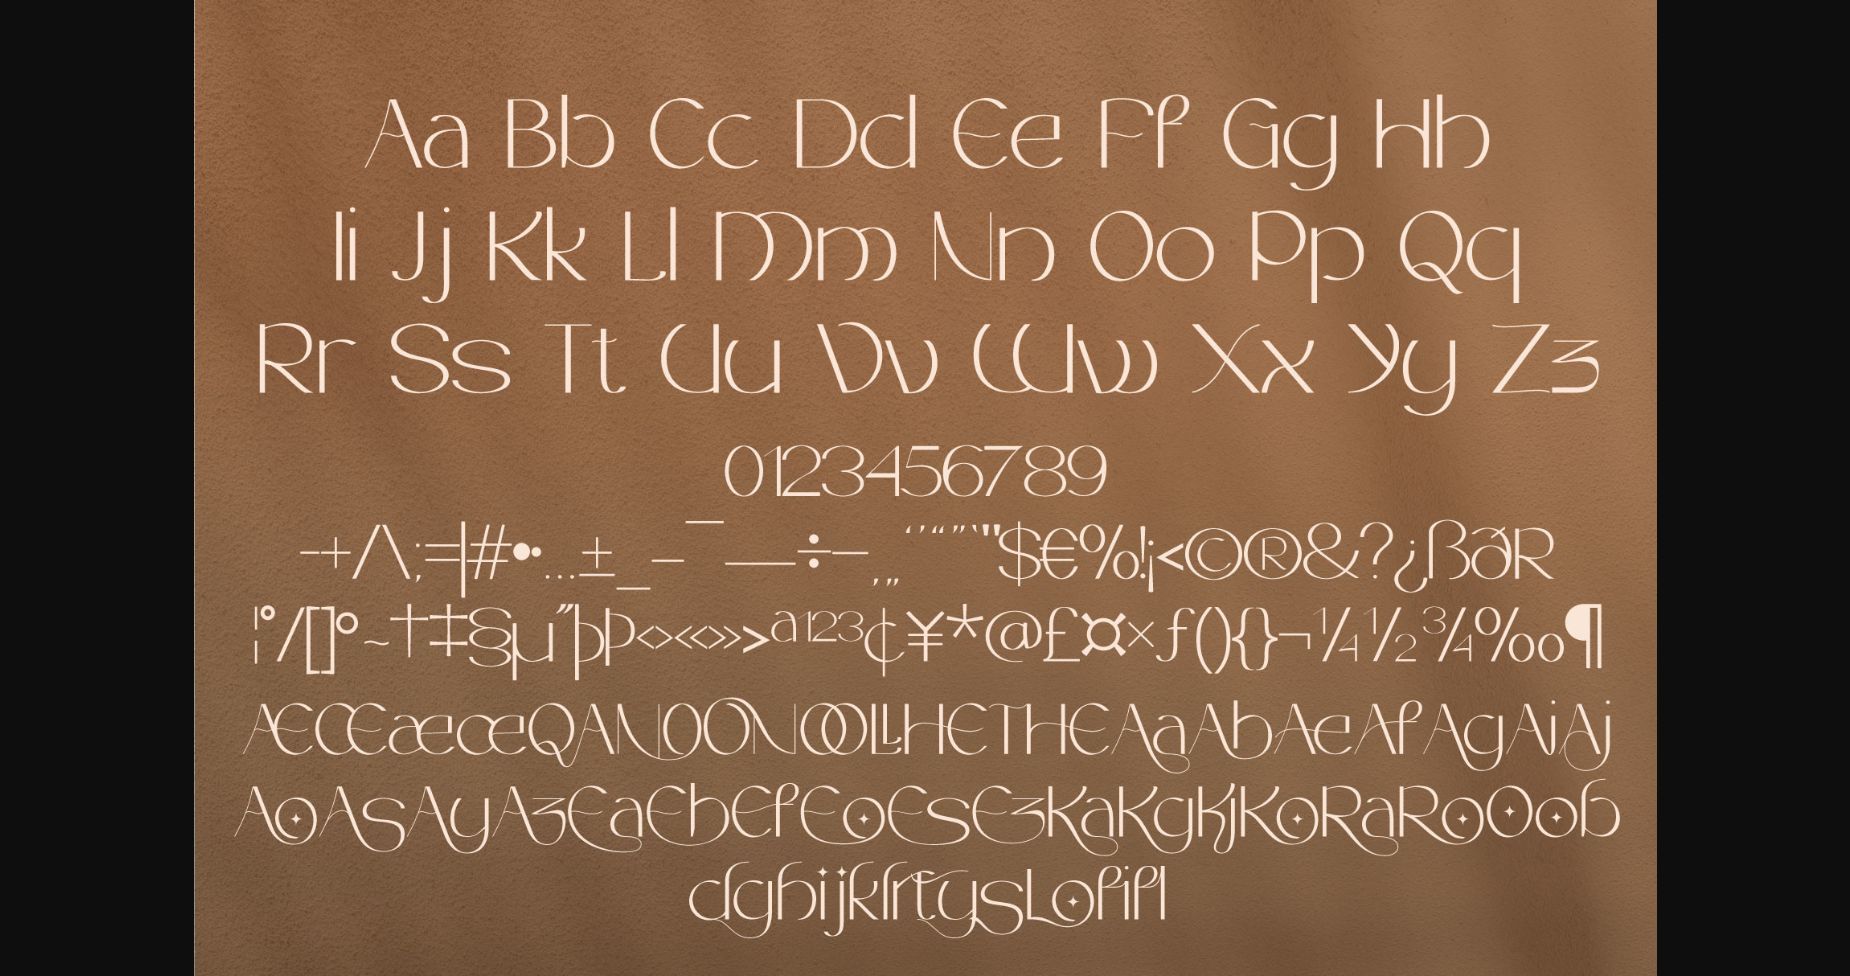 Aa Bb Cc Dd Ee Ff Gg Hh
Ii Jj Kk Ll Mm Nn Oo Pp Qq
Rr Ss Tt Uu Vv Ww Xx Yy Zz
0123456789
-+/\,;=|#•·...±_–¯—÷−‚„‘’“”'"$€%!¡<©®&?¿ßãR
¦°/[]º~†‡§µ˝þÞ‹›«»>ª¹²³¢¥*@£¤×ƒ(){}¬¼½¾‰¶
ÆŒæœQANOONOOLLHETHEAaAbAeAfAgAiAj
AoAsAyAzEaEbEfEoEsEzKaKgKjKoRaRoOob
dghijklrtysLofifl